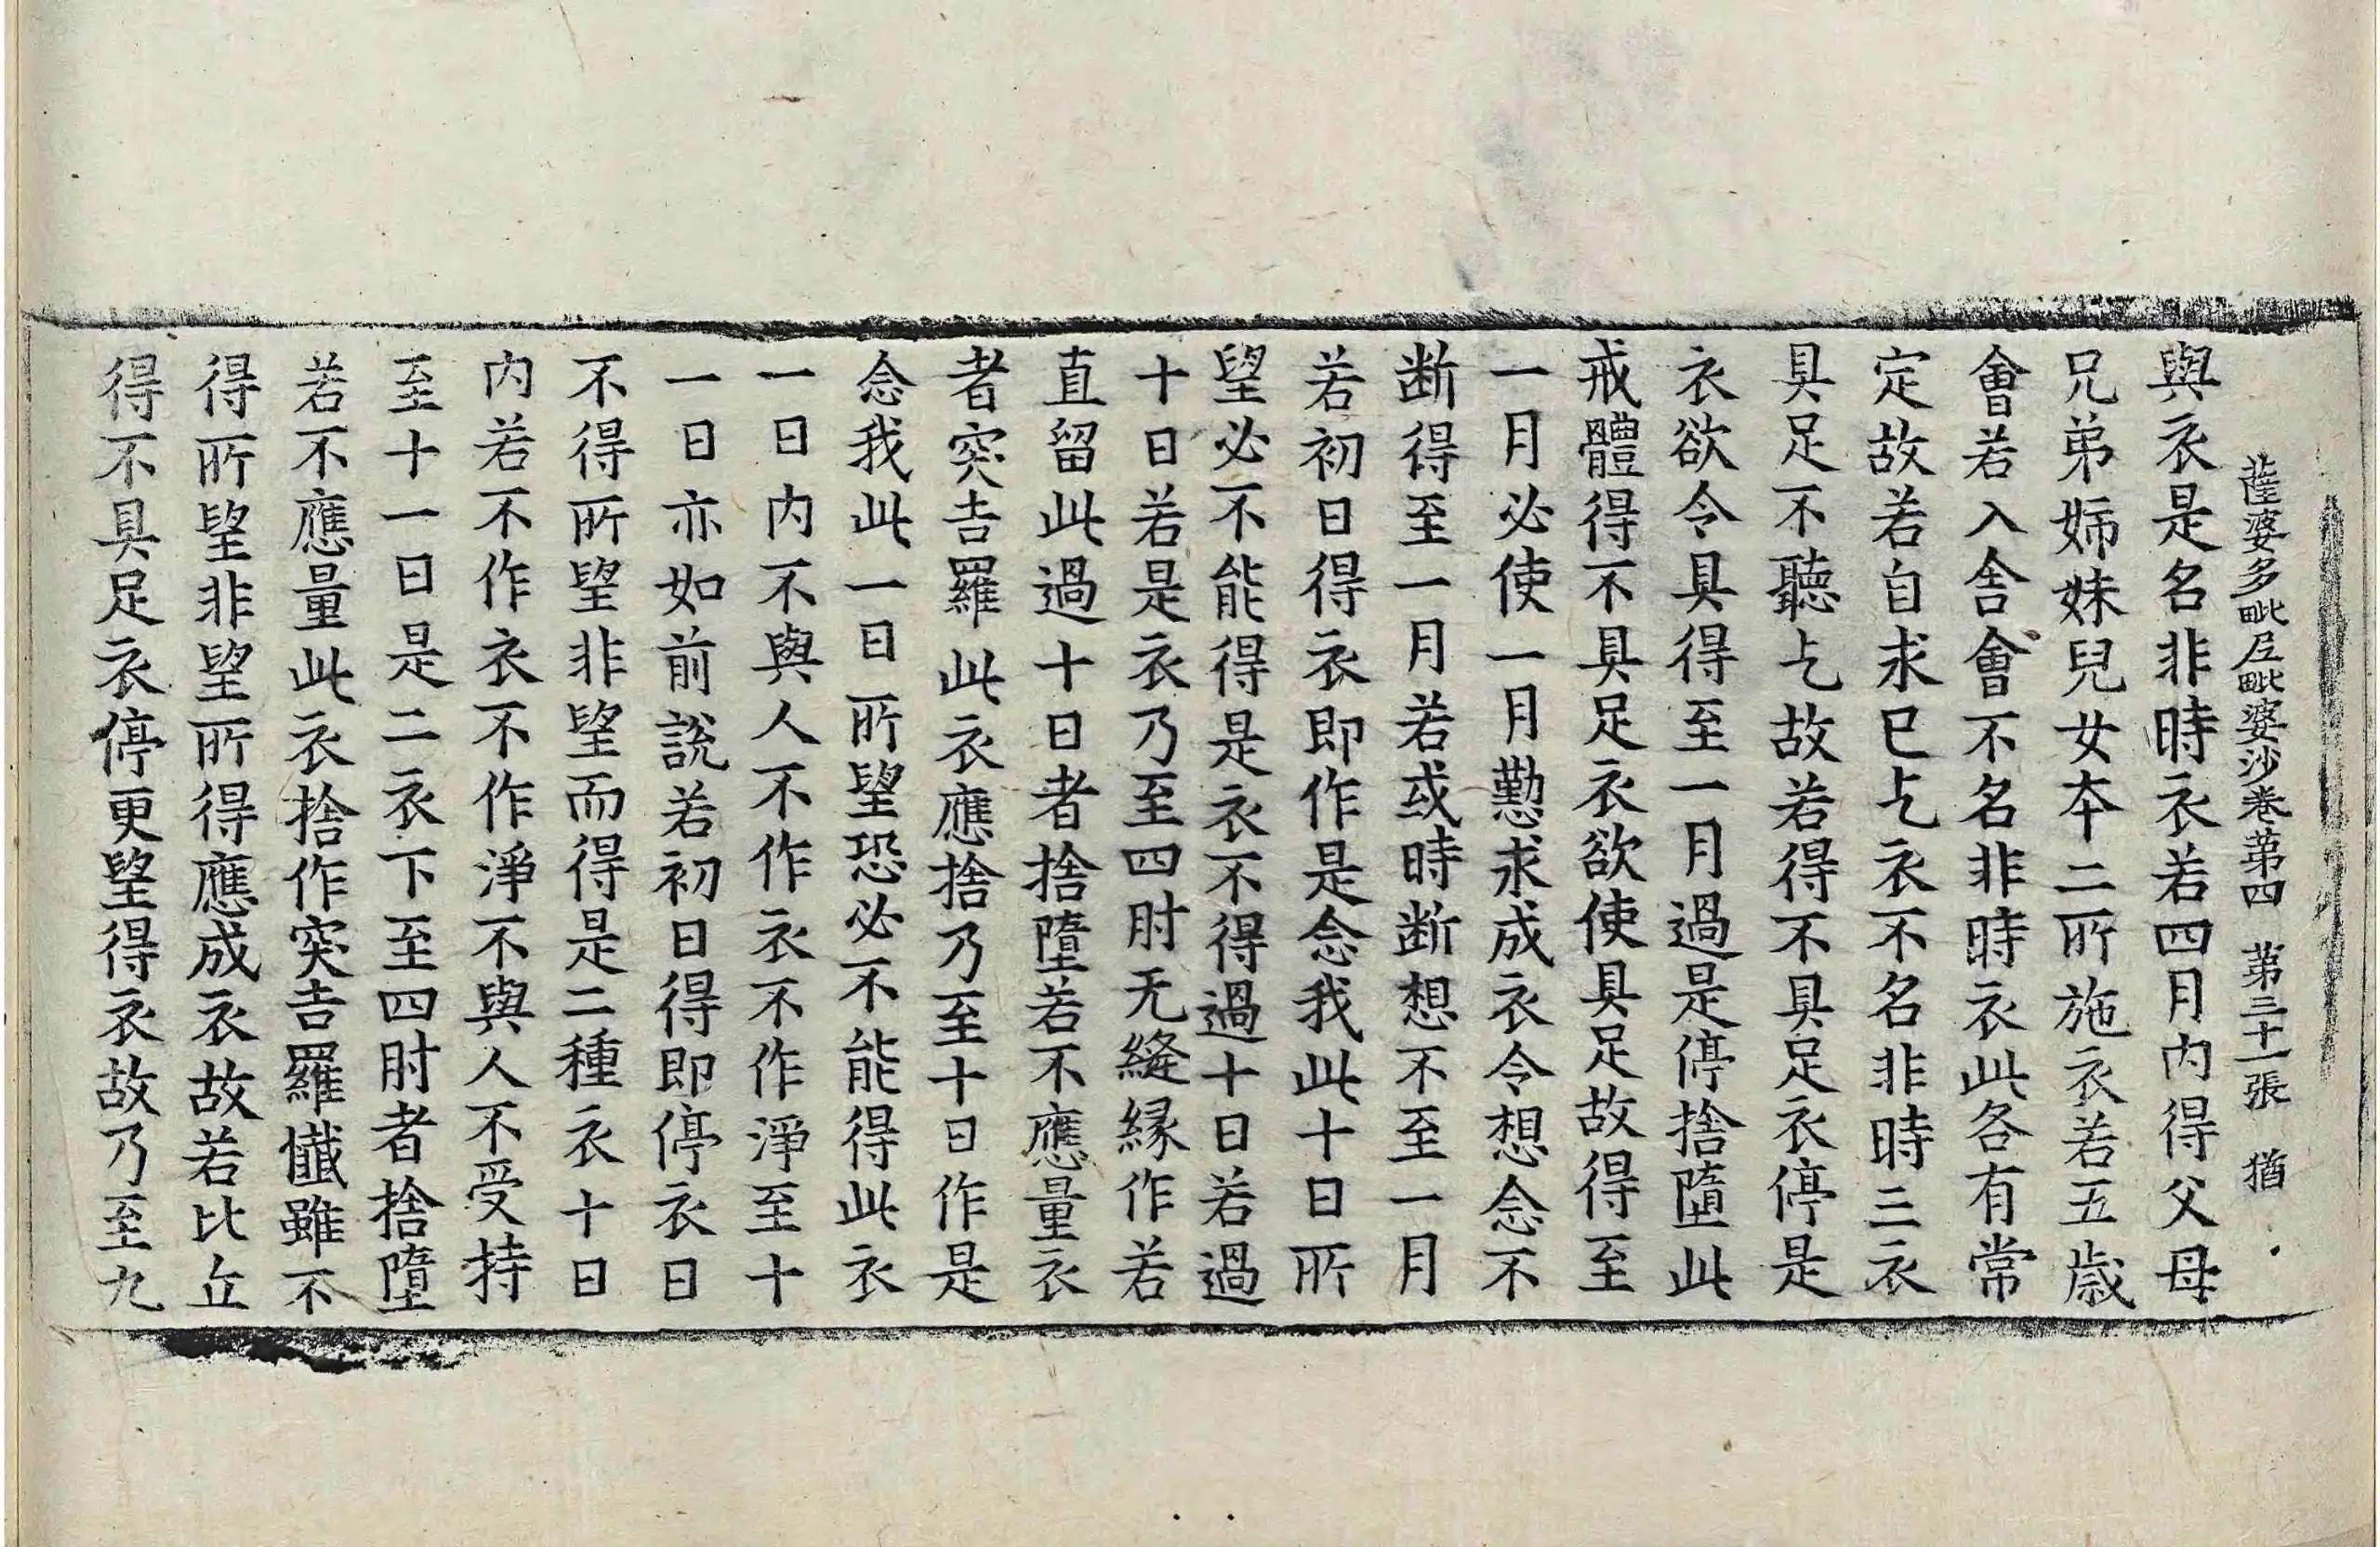 薩婆多毗尼毗婆沙卷第四　第三十一張　猶
與衣是名非時衣若四月内得父母
兄弟姉妹兒女夲二所施衣若五歲
會若入舎會不名非時衣此各有常
定故若自求已乞衣不名非時三衣
具足不聽乞故若得不具足衣停是
衣欲令具得至一月過是停捨墮此
戒體得不具足衣欲使具足故得至
一月必使一月懃求成衣令想念不
断得至一月若或時断想不至一月
若初日得衣即作是念我此十日所
望必不能得是衣不得過十日若過
十日若是衣乃至四肘无縫縁作若
直留此過十日者捨墮若不應量衣
者突吉羅此衣應捨乃至十日作是
念我此一日所望恐必不能得此衣
一日内不與人不作衣不作淨至十
一日亦如前說若初日得即停衣日
不得所望非望而得是二種衣十日
内若不作衣不作淨不與人不受持
至十一日是二衣下至四肘者捨墮
若不應量此衣捨作突吉羅懺雖不
得所望非望所得應成衣故若比丘
得不具足衣停更望得衣故乃至九